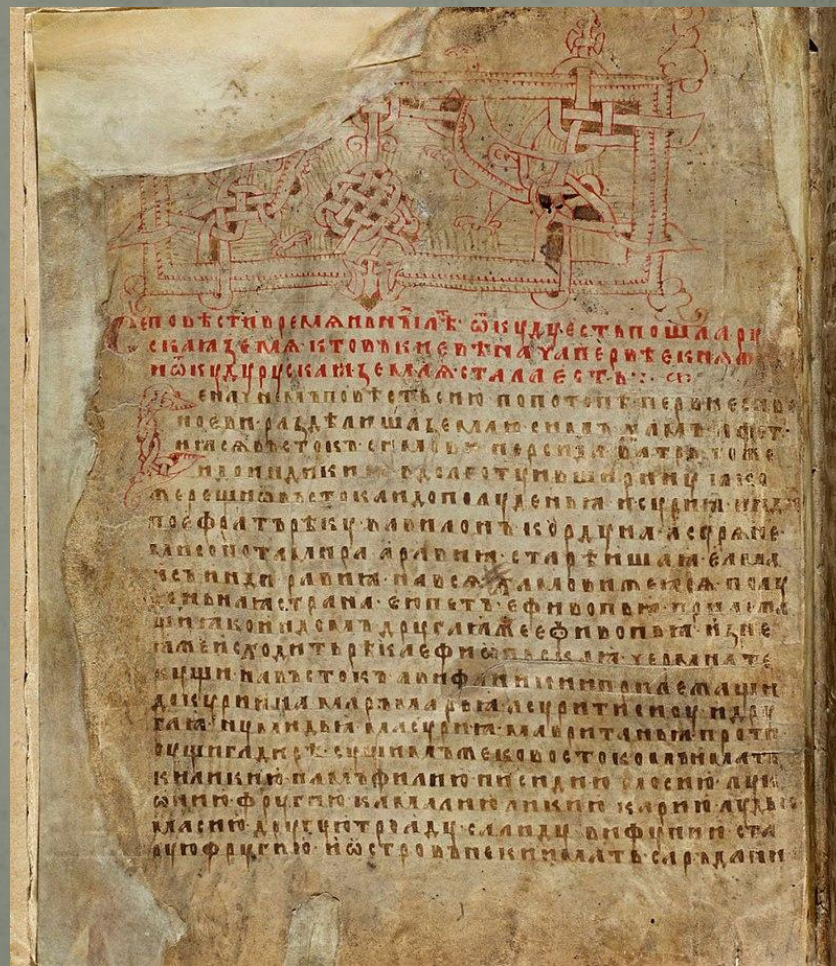 Се повѣсти времѧньнꙑⷯ лѣⷮ ѿкуду есть пошла ру
скаꙗ земѧ кто въ киевѣ нача первѣе кнѧⷤ
и ѿкуду рускаꙗ землѧ стала есть
се начнемъ повѣсть сию по потопѣ первие снве
ноеви раздѣлиша землю симъ хамъ афет
и ꙗсѧ въстокъ симови персида ватрь тоже
и до индикиꙗ в долготу и въ ширину ꙗко
же рещи ѿ въстока и до полуденьꙗ и суриꙗ
по ефратъ рѣку вавилонъ кордуна асурѧне
месопотамира аравиꙗ старѣишаꙗ елма
ись инди равиꙗ на всѧ хамови же ꙗсѧ полу
деньнаꙗ страна еюпетъ ефивопьꙗ прилежа
щиꙗ ко индомъ другаꙗ же ефивопьꙗ из не
ꙗже исходить рѣка ефиѡпьскаꙗ чермна те
кущи на въстокъ фива ливи прилежащи
до куриниꙗ мармарьꙗ асурити сиоу и дру
гаꙗ нумидьꙗ масуриꙗ мавританьꙗ проти
ву сущи гадирѣ сущимъ же ко востокомъ имать
киликию памъфилию писидию мосию лук
ѡнию фругию камалию ликию карию лудь
масию другую троаду салиду вифунию ста
рую фругию и ѡстровъ неки имать саръдани